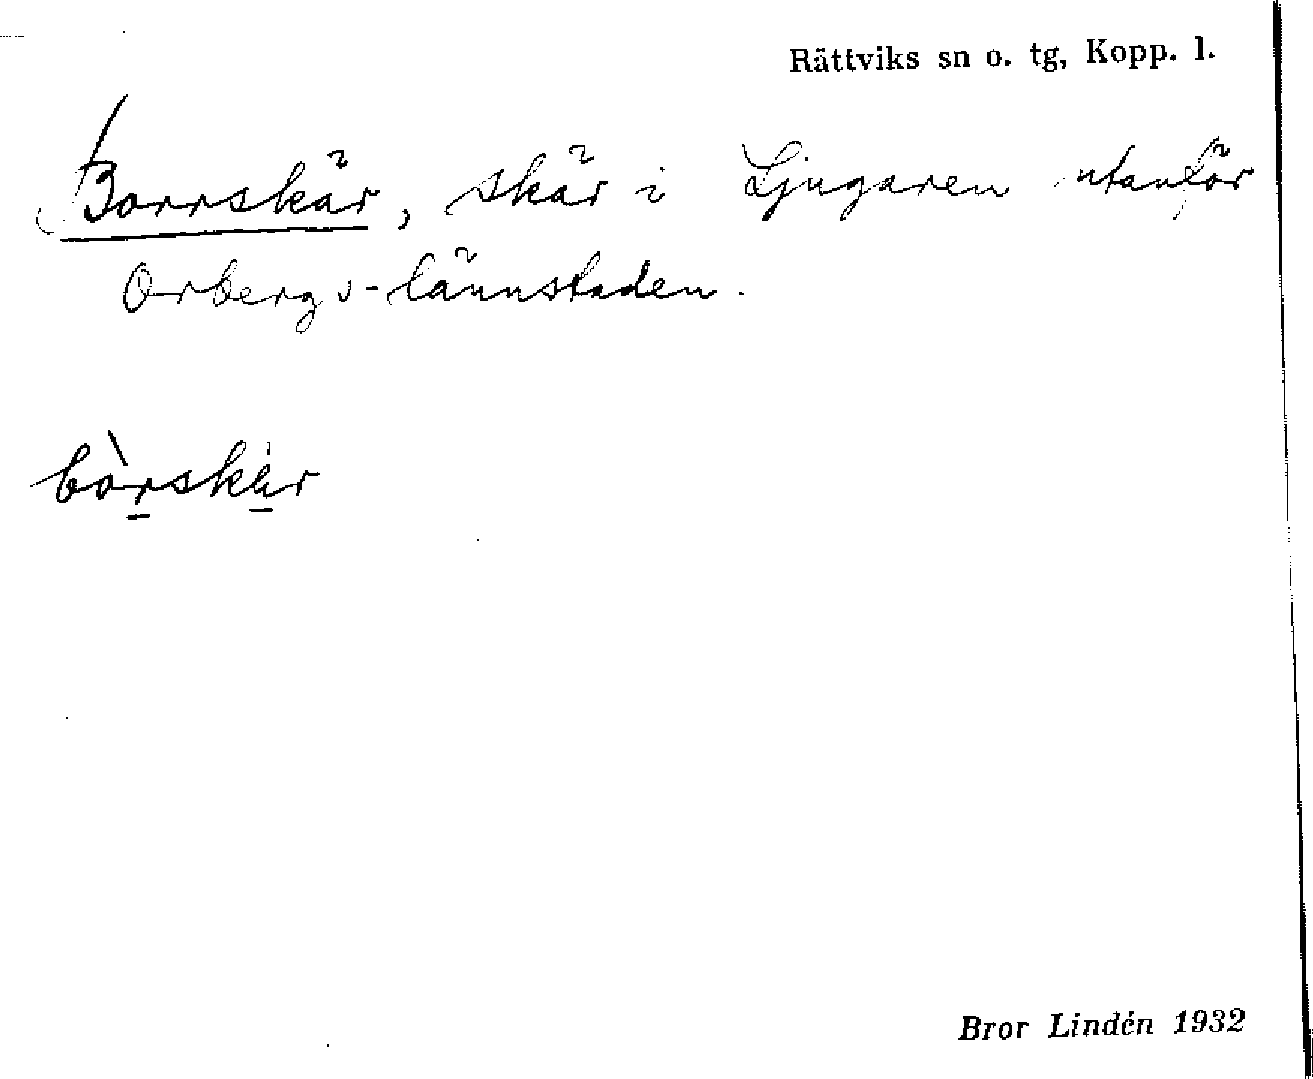 Rättviks sn o. tg, Kopp. l.
Borrskär, skär i Ljugaren utanför
Orbergs-lännstaden.
bòrskär
Bror Lindén 1932